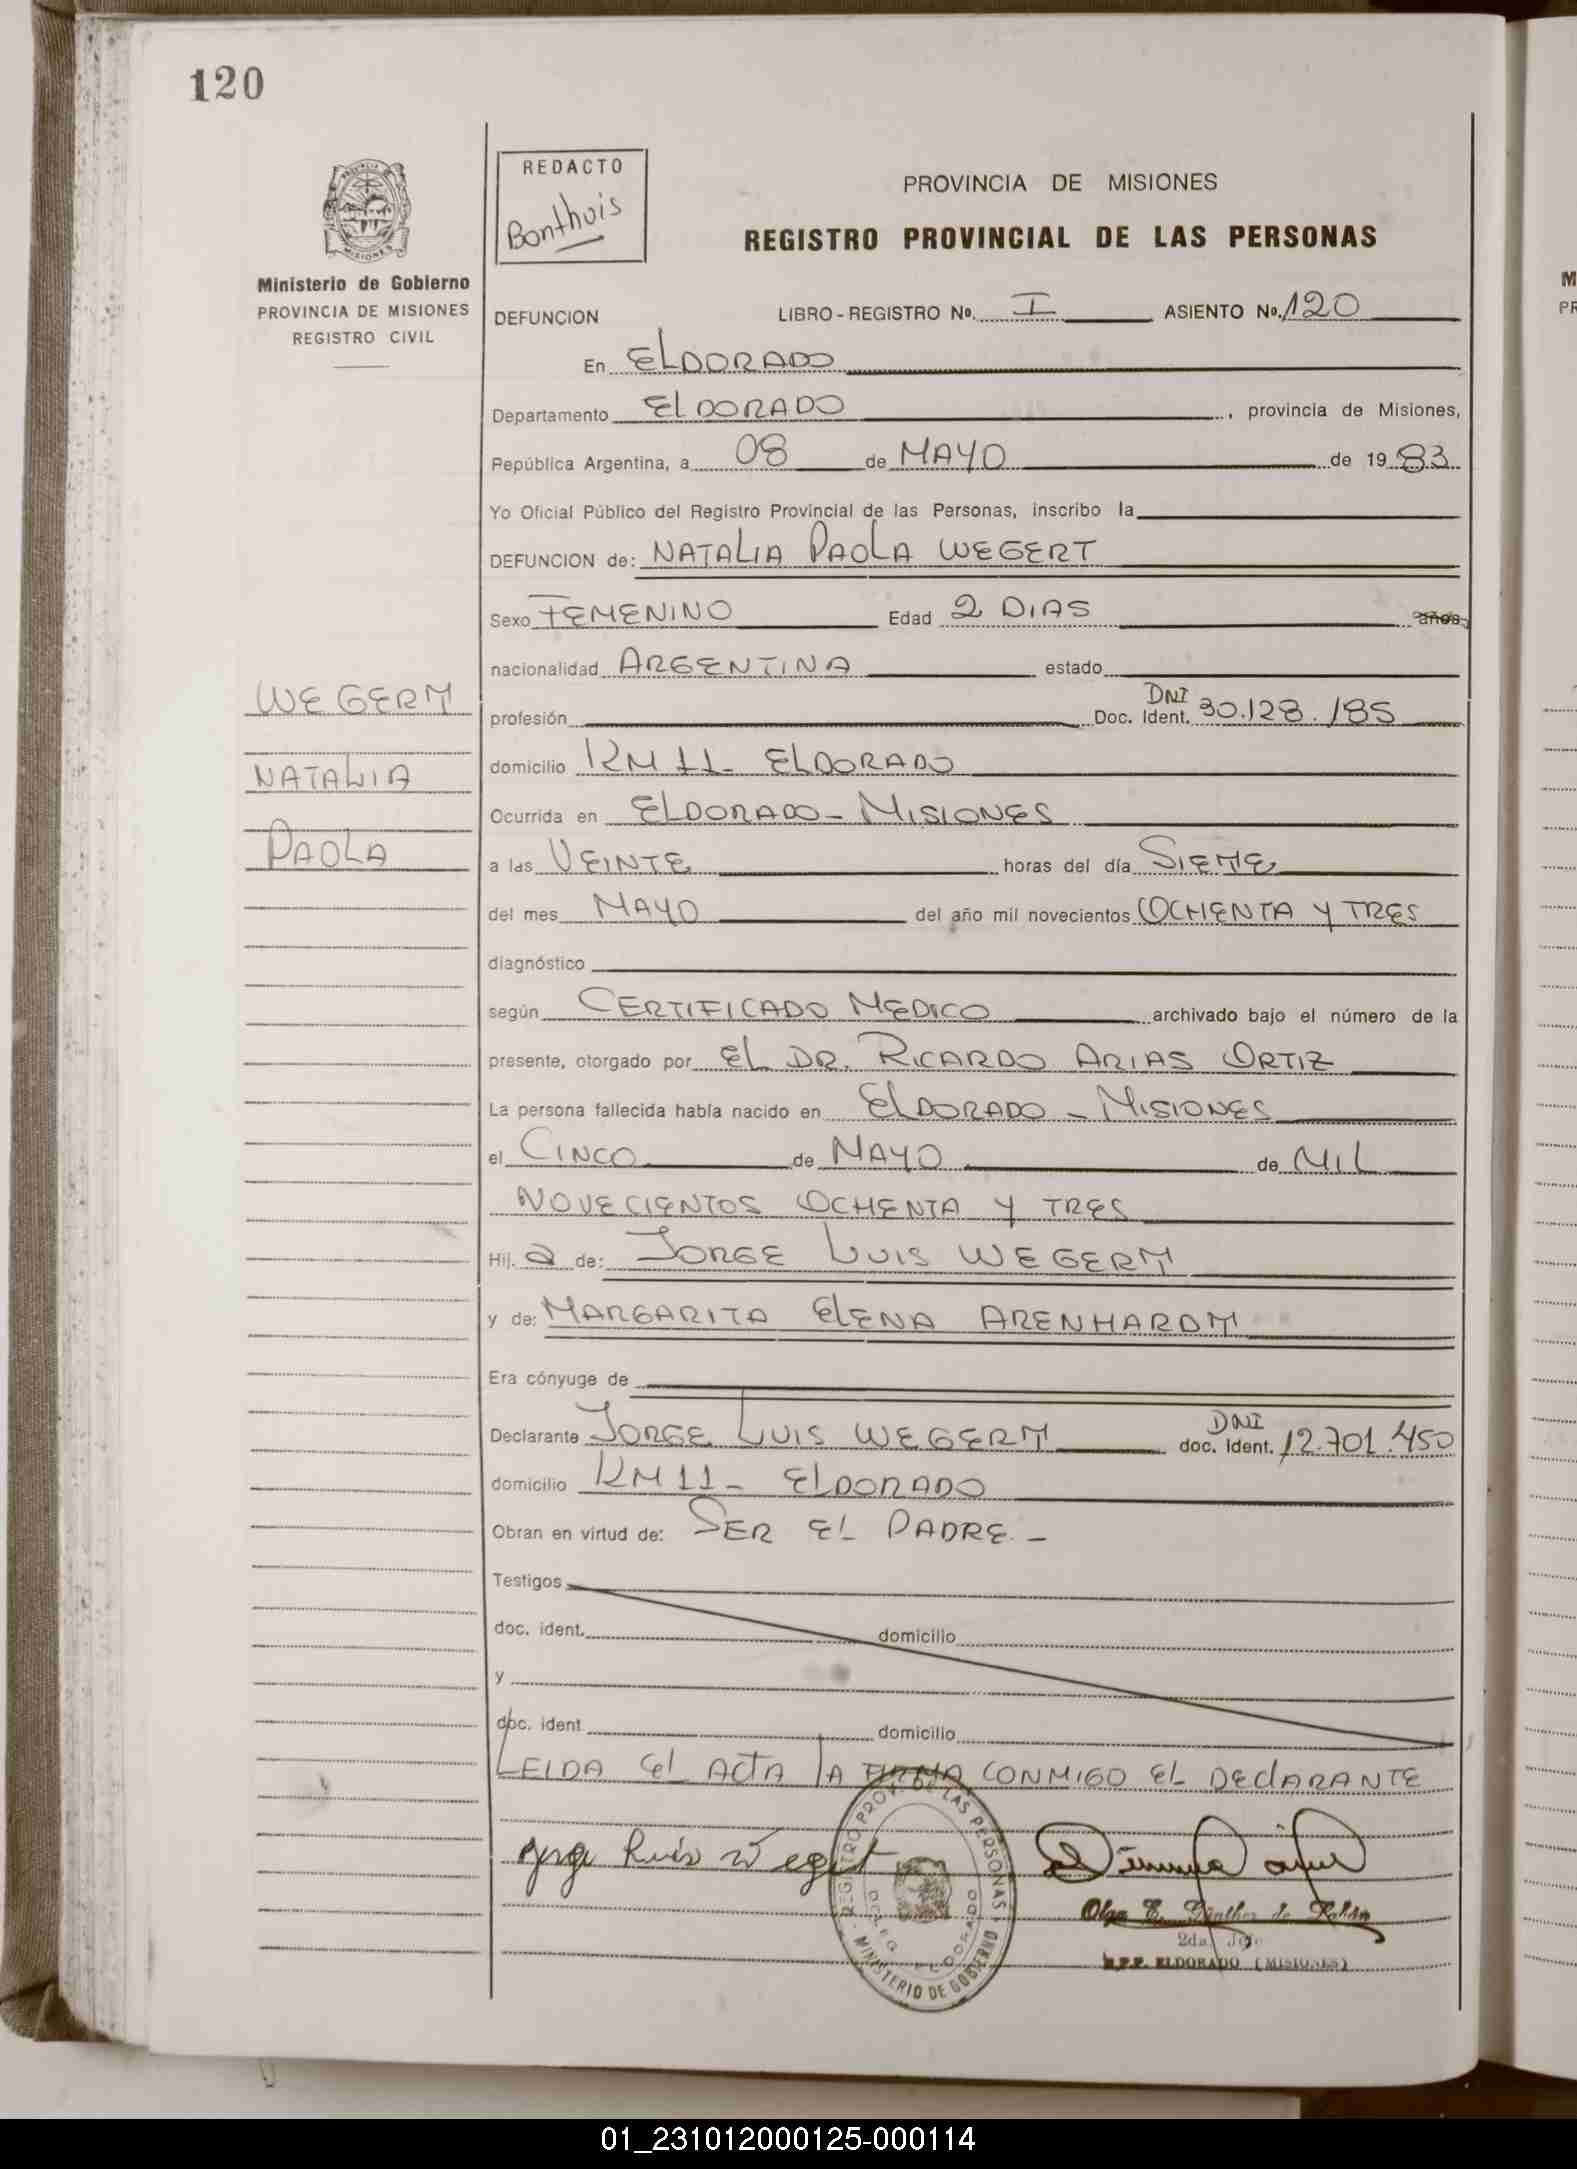 120
REDACTO
Bonthuis
Ministerio de Gobierno
PROVINCIA DE MISIONES
REGISTRO CIVIL
PROVINCIA DE MISIONES
REGISTRO PROVINCIAL DE LAS PERSONAS
DEFUNCION LIBRO - REGISTRO No. I ASIENTO No. 120
En ELDORADO
Departamento ELDORADO, provincia de Misiones,
República Argentina, a 08 de MAYO de 19 83
Yo Oficial Público del Registro Provincial de las Personas, inscribo la
DEFUNCION de: NATALIA PAOLA WEGERT
Sexo FEMENINO Edad 2 DIAS años
nacionalidad ARGENTINA estado
profesión Doc. Ident. DNI 30.128.185
WEGERT
NATALIA
PAOLA
domicilio KM 11- ELDORADO
Ocurrida en ELDORADO - MISIONES
a las VEINTE horas del día SIETE
del mes MAYO del año mil novecientos OCHENTA Y TRES
diagnóstico
según CERTIFICADO MEDICO archivado bajo el número de la
presente, otorgado por EL DR. RICARDO ARIAS ORTIZ
La persona fallecida había nacido en ELDORADO - MISIONES
el CINCO de MAYO de MIL
NOVECIENTOS OCHENTA Y TRES
Hij. a de: JORGE LUIS WEGERT
y de: MARGARITA ELENA ARENHARDT
Era cónyuge de
Declarante JORGE LUIS WEGERT doc. Ident. DNI 12.701.450
domicilio KM 11- ELDORADO
Obran en virtud de: SER EL PADRE.-
Testigos
doc. ident. domicilio
y
doc. ident. domicilio
LEIDA EL ACTA LA FIRMA CONMIGO EL DECLARANTE
Jorge Luis Wegert
REGISTRO PROV. DE LAS PERSONAS
DELEG. ELDORADO
MINISTERIO DE GOBIERNO
Olga E. de
2da. Jefe
R.P.P. ELDORADO (MISIONES)
01_231012000125-000114